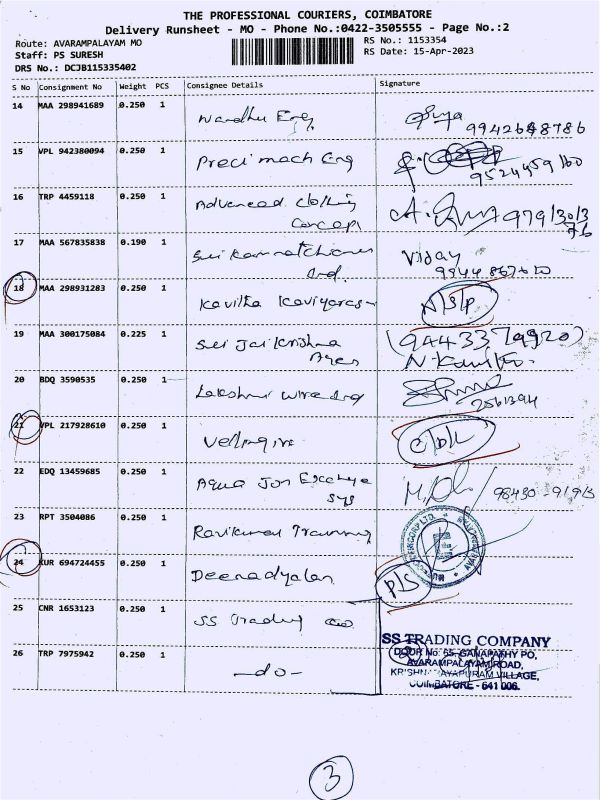 THE PROFESSIONAL COURIERS, COIMBATORE
Delivery Runsheet - MO - Phone No.:0422-3505555 - Page No.:2
Route: AVARAMPALAYAM MO
RS No.: 1153354
Staff: PS SURESH
RS Date: 15-Apr-2023
DRS No.: DCJB115335402
S No Consignment No Weight PCS Consignee Details Signature
14 MAA 298941689 0.250 1 Nandhu Eng
15 VPL 942380094 0.250 1 Precimach Eng
9524459160
16 TRP 4459118 0.250 1 Advanced clothing
Concept
17 MAA 567835838 0.190 1
Vijay
Ind.
18 MAA 298931283 0.250 1 Kavitha Kaviyarasn N/S/P
19 MAA 300175084 0.225 1 Sri Jaikrishna (9443379920)
Agen
20 BDQ 3590535 0.250 1 Lakshmi wire Ind
2561394
21 VPL 217928610 0.250 1 C/D/L
22 EDQ 13459685 0.250 1 Aqua Ion Exchange
Sys
23 RPT 3504086 0.250 1 Ravikumar Training
24 KUR 694724455 0.250 1 Deenadyalan P/S
25 CNR 1653123 0.250 1 SS Trading Co
SS TRADING COMPANY
26 TRP 7975942 0.250 1 -do-
DOOR No: 55, GANAPATHY PO,
AVARAMPALAYAM ROAD,
VILLAGE,
COIMBATORE - 641 006.
3